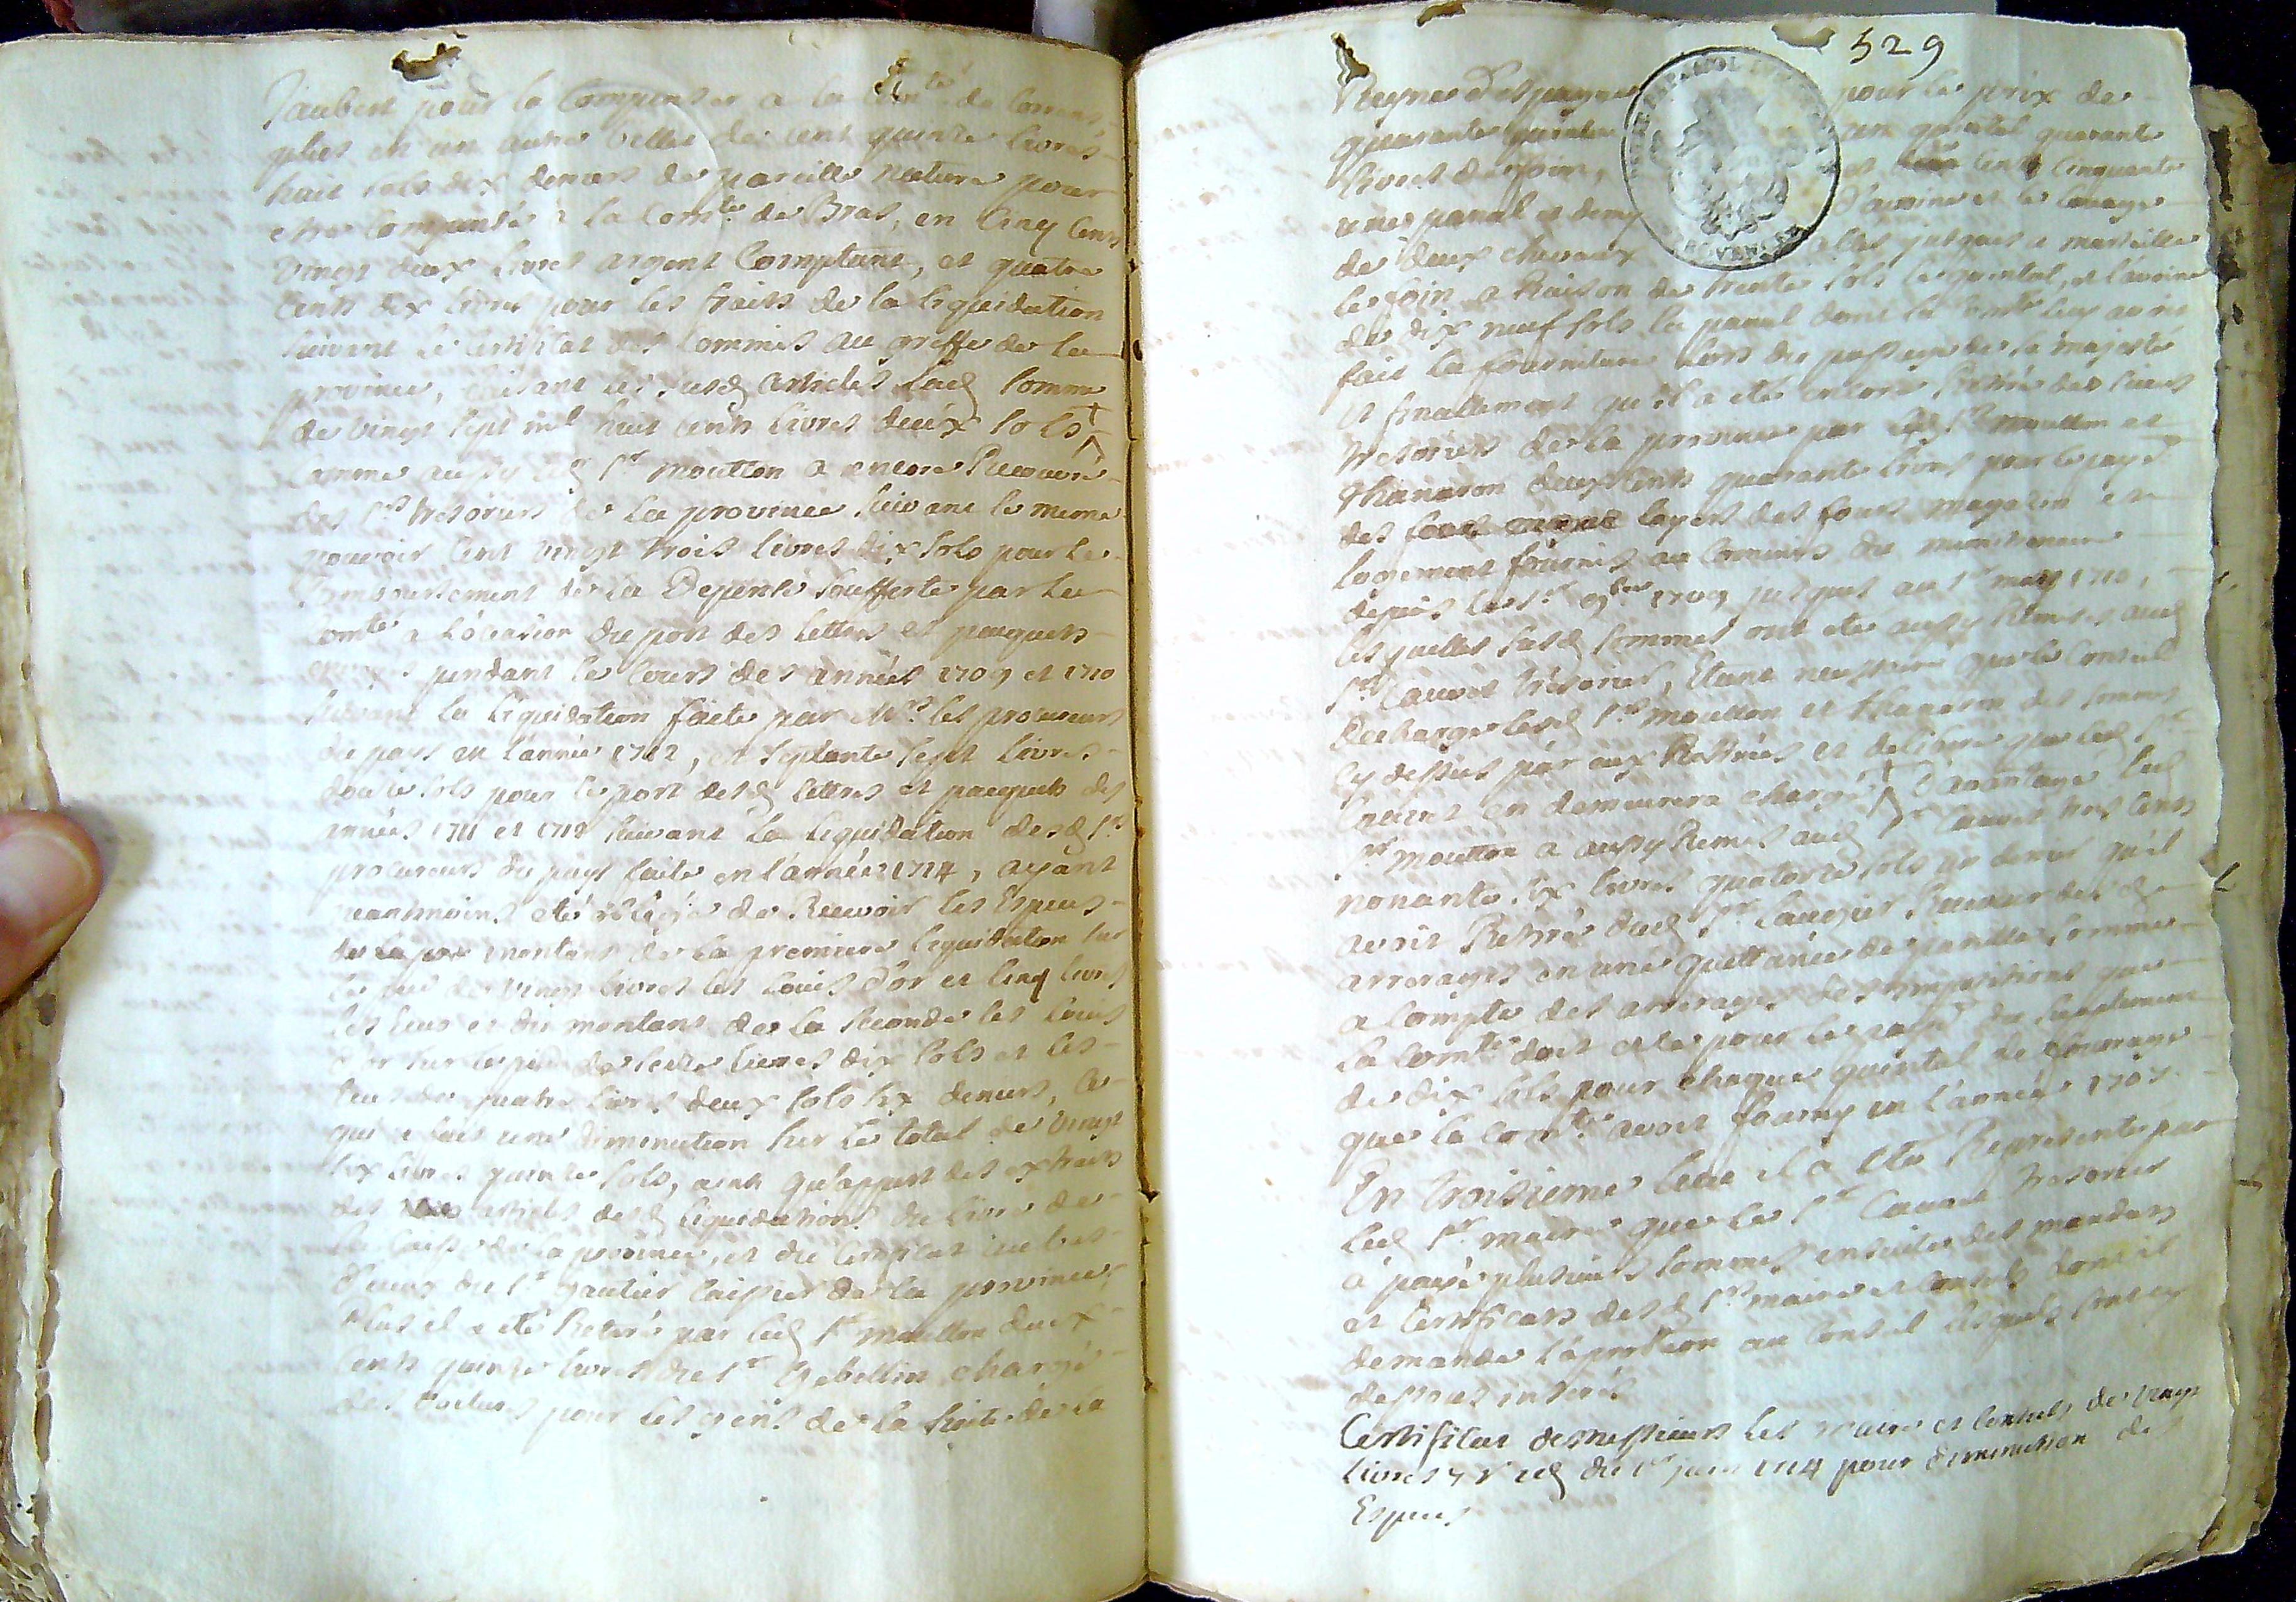 Jaubert pour la Compenser a la Com.té de Correns,
plus en un autre billet de cent quinze livres
huit sols dix deniers de pareille nature pour
etre Compensée a la Com.té de Bras, en Cinq Cents
vingt deux livres argent Comptant, et quatre
Cents dix livres pour les fraits de la liquidation
suivant le Certificat des Commis au greffe de la
province, faisant les susd articles lad somme
de vingt sept mil huit cents livres deux sols
Comme aussy led S.r moutton a encore Recouvré
des S.rs Tresoriers de la province suivant le meme
pouvoir Cent vingt trois livres dix sols pour le
Remboursement de la Depense soufferte par la
Com.té a l'ocasion du port des lettres et paquets
pendant le Cours des années 1709 et 1710
suivant la liquidation faite par M.rs les procureurs
du pays en l'année 1712, et septante sept livres
douze sols pour le port desd lettres et paquets des
années 1711 et 1712 suivant la liquidation desd S.rs
procureurs du pays faite en l'année 1714, ayant
neantmoins eté obligé de Recevoir les Especes
du montant de la premiere liquidation sur
le pied de vingt livres les Louis d'or et Cinq livres
les Ecus et du montant de la seconde les Louis
d'or sur le pied de seize livres dix sols et les
Ecus de quatre livres deux sols six deniers, Ce
qui a fait une diminution sur le total de vingt
six livres quinze sols, ainsi qu'appert des extraits
des articles desd liquidations du livre de
la Caisse de la province, et du Certificat au bas
d'iceux du S.r gautier Caissier de la province,
Plus il a eté Retiré par led S.r moutton deux
Cents quinze livres du S.r Gebellin chargé
des voitures pour les gens de la suite de la
529
Reyne d'espagne pour le prix de
quarante quintaux un quintal quarante
livres de foin, et Cent Cinquante
une panal et demy d'avoine et le louage
de deux chevaux jusques a marseille
le foin a Raison de trente sols le quintal, et l'avoine
de dix neuf sols le panal dont la Com.té luy avoit
fait la fourniture lors du passage de sa majesté
et finallement qu'il a eté encore Retiré des sieurs
Tresoriers de la province par led S.r moutton et
Thanaron deux Cents quarante livres pour le paye.t
des loyers des fours magazin et
logement fournis au Commis du munitionnaire
depuis le 1.er 9.bre 1709 jusques au 1.er mars 1710,
lesquelles susd sommes ont eté aussy Remises aud
S.r Cauvet Trésorier, Etant necessaire que le Conseil
decharge lesd S.rs moutton et Thanaron des sommes
cy dessus par eux Retirées et delibere que led S.r
Cauvet en demeurera chargé d'avantage led
S.r moutton a aussy Remis aud S.r Cauvet trois Cents
nonante six livres quatorze sols un denier qu'il
avoit Retiré dud S.r Laugier Receveur des
arrerages en une quittance de pareille somme
a Compte des arrerages des impositions que
la Com.té doit et ce pour le du suplement
de dix sols pour chaque quintal de fourrage
que la Com.té avoit fourny en l'année 1707.
En Troisieme lieu il a eté Representé par
led S.r maire que le S.r Cauvet Tresorier
a payé plusieurs sommes ensuite des mandats
et Certificats desd S.rs maire et Consuls dont il
demande l'aprobation au Conseil lesquels sont cy
dessous inserés
Certificat de messieurs les maire et Consuls de vingt
livres du 1.er juin 1714 pour diminution de
Especes